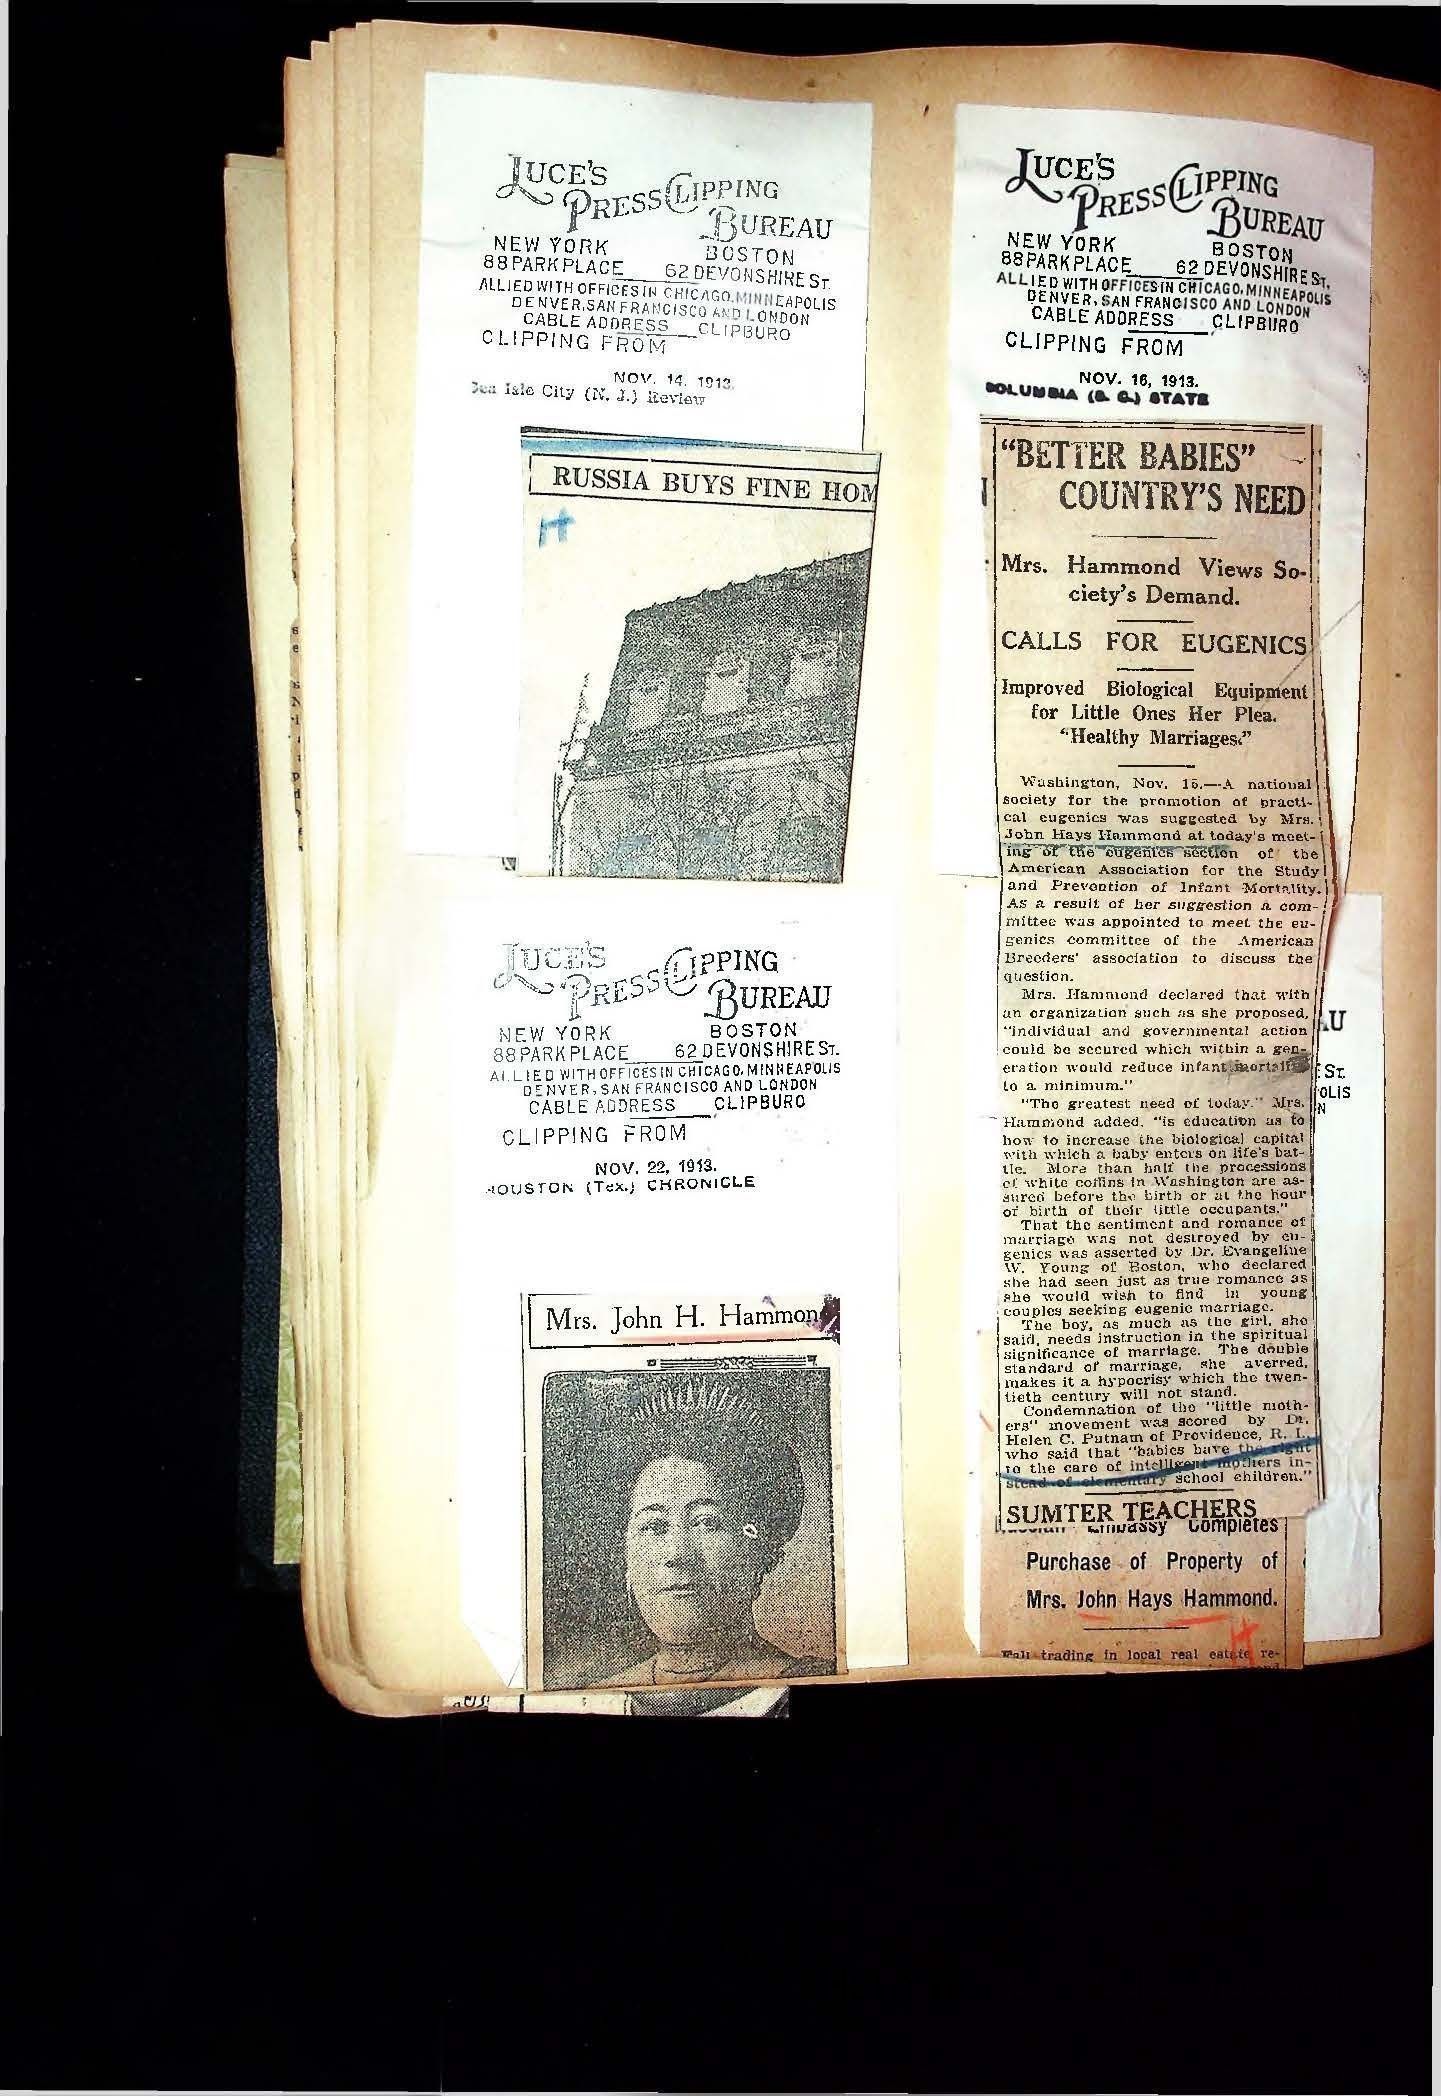 LUCE'S
PRESS CLIPPING
BUREAU
NEW YORK BOSTON
88 PARK PLACE 62 DEVONSHIRE ST.
ALLIED WITH OFFICES IN CHICAGO, MINNEAPOLIS
DENVER, SAN FRANCISCO AND LONDON
CABLE ADDRESS CLIPBURO
CLIPPING FROM
NOV. 14, 1913.
Sea Isle City (N. J.) Review
RUSSIA BUYS FINE HOM
H
LUCE'S
PRESS CLIPPING
BUREAU
NEW YORK BOSTON
88 PARK PLACE 62 DEVONSHIRE ST.
ALLIED WITH OFFICES IN CHICAGO, MINNEAPOLIS
DENVER, SAN FRANCISCO AND LONDON
CABLE ADDRESS CLIPBURO
CLIPPING FROM
NOV. 22, 1913.
HOUSTON (Tex.) CHRONICLE
Mrs. John H. Hammon
LUCE'S
PRESS CLIPPING
BUREAU
NEW YORK BOSTON
88 PARK PLACE 62 DEVONSHIRE ST.
ALLIED WITH OFFICES IN CHICAGO, MINNEAPOLIS
DENVER, SAN FRANCISCO AND LONDON
CABLE ADDRESS CLIPBURO
CLIPPING FROM
NOV. 16, 1913.
COLUMBIA (S. C.) STATE
"BETTER BABIES"
COUNTRY'S NEED
Mrs. Hammond Views So-
ciety's Demand.
CALLS FOR EUGENICS
Improved Biological Equipment
for Little Ones Her Plea.
"Healthy Marriages."
Washington, Nov. 15.—A national
society for the promotion of practi-
cal eugenics was suggested by Mrs.
John Hays Hammond at today's meet-
ing of the eugenics section of the
American Association for the Study
and Prevention of Infant Mortality.
As a result of her suggestion a com-
mittee was appointed to meet the eu-
genics committee of the American
Breeders' association to discuss the
question.
Mrs. Hammond declared that with
an organization such as she proposed,
"individual and governmental action
could be secured which within a gen-
eration would reduce infant mortality
to a minimum."
"The greatest need of today," Mrs.
Hammond added, "is education as to
how to increase the biological capital
with which a baby enters on life's bat-
tle. More than half the processions
of white coffins in Washington are as-
sured before the birth or at the hour
of birth of their little occupants."
That the sentiment and romance of
marriage was not destroyed by eu-
genics was asserted by Dr. Evangeline
W. Young of Boston, who declared
she had seen just as true romance as
she would wish to find in young
couples seeking eugenic marriage.
The boy, as much as the girl, she
said, needs instruction in the spiritual
significance of marriage. The double
standard of marriage, she averred,
makes it a hypocrisy which the twen-
tieth century will not stand.
Condemnation of the "little moth-
ers" movement was scored by Dr.
Helen C. Putnam of Providence, R. I.,
who said that "babies have the right
to the care of intelligent mothers in-
stead of elementary school children."
SUMTER TEACHERS
Embassy Completes
Purchase of Property of
Mrs. John Hays Hammond.
H
trading in local real estate re-
AU
ST.
OLIS
N